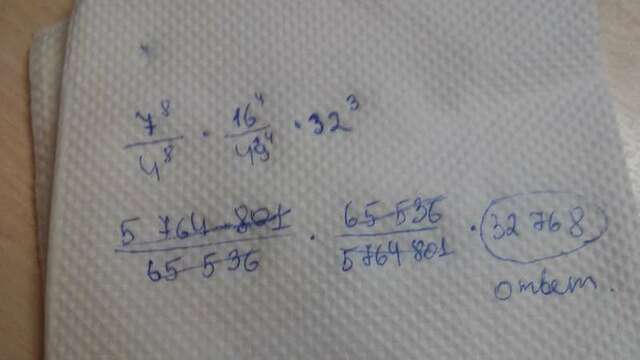 7⁸/4⁸ · 16⁴/49⁴ · 32³
5 764 801/65 536 · 65 536/5764801 · 32 768
ответ.